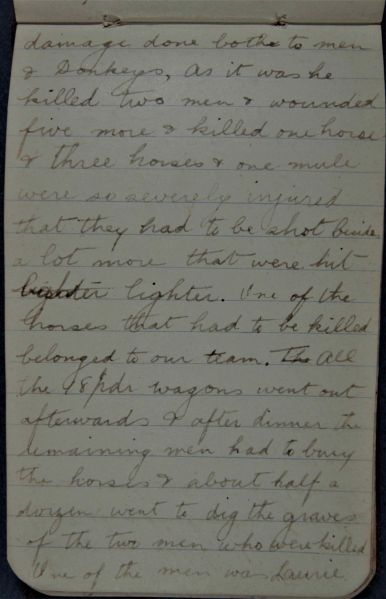 damage done bothe to men
& Donkeys, As it was he
killed two men & wounded
five more & killed one horse
& three horses & one mule
were so severely injured
that they had to be shot beside
a lot more that were hit
lighter. One of the
horses that had to be killed
belonged to our team. The All
the 18pdr wagons went out
afterwards & after dinner the
remaining men had to bury
the horses & about half a
dozen went to dig the graves
of the two men who were killed
One of the men was Laurie